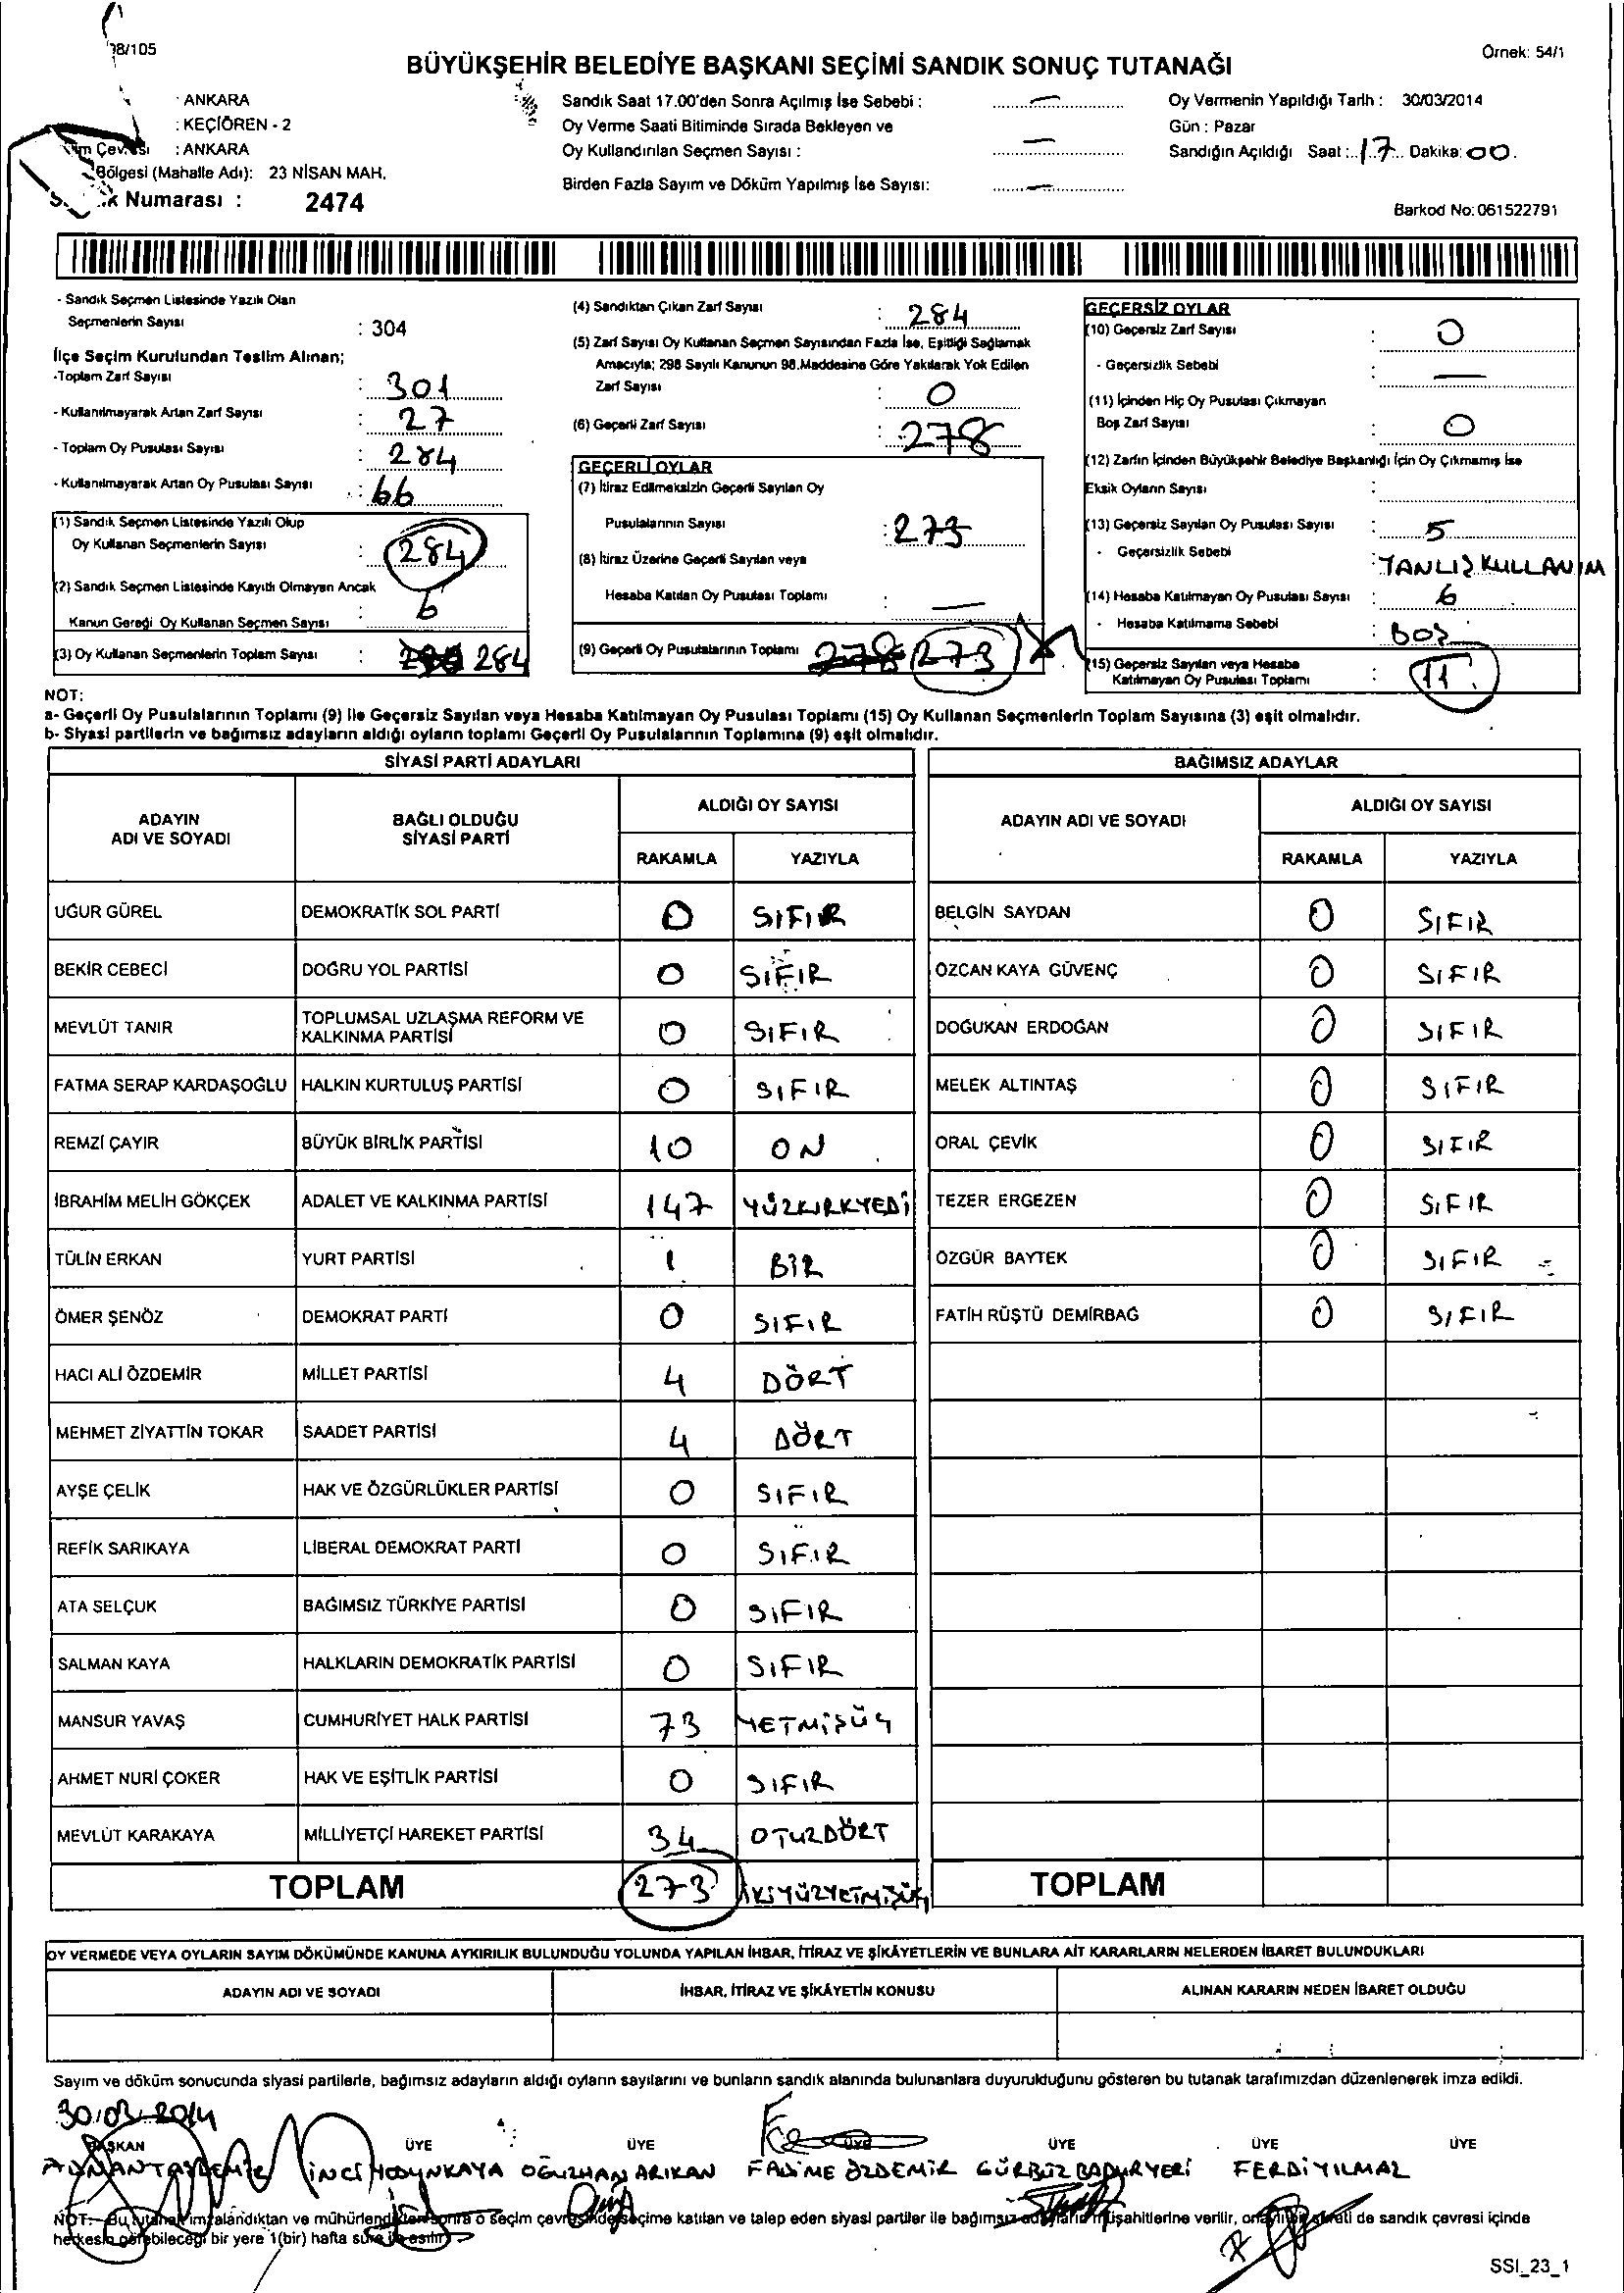 98/105
Örnek: 54/1
BÜYÜKŞEHİR BELEDİYE BAŞKANI SEÇİMİ SANDIK SONUÇ TUTANAĞI
: ANKARA
: KEÇİÖREN - 2
: ANKARA
Bölgesi (Mahalle Adı): 23 NİSAN MAH.
Numarası : 2474
Sandık Saat 17.00'den Sonra Açılmış İse Sebebi : —
Oy Verme Saati Bitiminde Sırada Bekleyen ve
Oy Kullandırılan Seçmen Sayısı : —
Birden Fazla Sayım ve Döküm Yapılmış İse Sayısı: —
Oy Vermenin Yapıldığı Tarih : 30/03/2014
Gün : Pazar
Sandığın Açıldığı Saat : 17 Dakika: 00
Barkod No: 061522791
- Sandık Seçmen Listesinde Yazılı Olan
Seçmenlerin Sayısı : 304
İlçe Seçim Kurulundan Teslim Alınan;
-Toplam Zarf Sayısı : 301
- Kullanılmayarak Artan Zarf Sayısı : 27
- Toplam Oy Pusulası Sayısı : 284
- Kullanılmayarak Artan Oy Pusulası Sayısı : 66
(1) Sandık Seçmen Listesinde Yazılı Olup
Oy Kullanan Seçmenlerin Sayısı : 284
(2) Sandık Seçmen Listesinde Kayıtlı Olmayan Ancak
Kanun Gereği Oy Kullanan Seçmen Sayısı : 6
(3) Oy Kullanan Seçmenlerin Toplam Sayısı : 284
(4) Sandıktan Çıkan Zarf Sayısı : 284
(5) Zarf Sayısı Oy Kullanan Seçmen Sayısından Fazla İse, Eşitliği Sağlamak
Amacıyla; 298 Sayılı Kanunun 98.Maddesine Göre Yakılarak Yok Edilen
Zarf Sayısı : 0
(6) Geçerli Zarf Sayısı : 278
GEÇERLİ OYLAR
(7) İtiraz Edilmeksizin Geçerli Sayılan Oy
Pusulalarının Sayısı : 273
(8) İtiraz Üzerine Geçerli Sayılan veya
Hesaba Katılan Oy Pusulası Toplamı : —
(9) Geçerli Oy Pusulalarının Toplamı 278 273
GEÇERSİZ OYLAR
(10) Geçersiz Zarf Sayısı : 0
- Geçersizlik Sebebi : —
(11) İçinden Hiç Oy Pusulası Çıkmayan
Boş Zarf Sayısı : 0
(12) Zarfın İçinden Büyükşehir Belediye Başkanlığı İçin Oy Çıkmamış İse
Eksik Oyların Sayısı :
(13) Geçersiz Sayılan Oy Pusulası Sayısı : 5
- Geçersizlik Sebebi : YANLIŞ KULLANIM
(14) Hesaba Katılmayan Oy Pusulası Sayısı : 6
- Hesaba Katılmama Sebebi : BOŞ
(15) Geçersiz Sayılan veya Hesaba
Katılmayan Oy Pusulası Toplamı : 11
NOT:
a- Geçerli Oy Pusulalarının Toplamı (9) ile Geçersiz Sayılan veya Hesaba Katılmayan Oy Pusulası Toplamı (15) Oy Kullanan Seçmenlerin Toplam Sayısına (3) eşit olmalıdır.
b- Siyasi partilerin ve bağımsız adayların aldığı oyların toplamı Geçerli Oy Pusulalarının Toplamına (9) eşit olmalıdır.
SİYASİ PARTİ ADAYLARI
ADAYIN ADI VE SOYADI
BAĞLI OLDUĞU SİYASİ PARTİ
ALDIĞI OY SAYISI
RAKAMLA YAZIYLA
UĞUR GÜREL DEMOKRATİK SOL PARTİ 0 SIFIR
BEKİR CEBECİ DOĞRU YOL PARTİSİ 0 SIFIR
MEVLÜT TANIR TOPLUMSAL UZLAŞMA REFORM VE KALKINMA PARTİSİ 0 SIFIR
FATMA SERAP KARDAŞOĞLU HALKIN KURTULUŞ PARTİSİ 0 SIFIR
REMZİ ÇAYIR BÜYÜK BİRLİK PARTİSİ 10 ON
İBRAHİM MELİH GÖKÇEK ADALET VE KALKINMA PARTİSİ 147 YÜZKIRKYEDİ
TÜLİN ERKAN YURT PARTİSİ 1 BİR
ÖMER ŞENÖZ DEMOKRAT PARTİ 0 SIFIR
HACI ALİ ÖZDEMİR MİLLET PARTİSİ 4 DÖRT
MEHMET ZİYATTİN TOKAR SAADET PARTİSİ 4 DÖRT
AYŞE ÇELİK HAK VE ÖZGÜRLÜKLER PARTİSİ 0 SIFIR
REFİK SARIKAYA LİBERAL DEMOKRAT PARTİ 0 SIFIR
ATA SELÇUK BAĞIMSIZ TÜRKİYE PARTİSİ 0 SIFIR
SALMAN KAYA HALKLARIN DEMOKRATİK PARTİSİ 0 SIFIR
MANSUR YAVAŞ CUMHURİYET HALK PARTİSİ 73 YETMİŞÜÇ
AHMET NURİ ÇOKER HAK VE EŞİTLİK PARTİSİ 0 SIFIR
MEVLÜT KARAKAYA MİLLİYETÇİ HAREKET PARTİSİ 34 OTUZDÖRT
TOPLAM 273 İKİYÜZYETMİŞÜÇ
BAĞIMSIZ ADAYLAR
ADAYIN ADI VE SOYADI
ALDIĞI OY SAYISI
RAKAMLA YAZIYLA
BELGİN SAYDAN 0 SIFIR
ÖZCAN KAYA GÜVENÇ 0 SIFIR
DOĞUKAN ERDOĞAN 0 SIFIR
MELEK ALTINTAŞ 0 SIFIR
ORAL ÇEVİK 0 SIFIR
TEZER ERGEZEN 0 SIFIR
ÖZGÜR BAYTEK 0 SIFIR
FATİH RÜŞTÜ DEMİRBAĞ 0 SIFIR
TOPLAM
OY VERMEDE VEYA OYLARIN SAYIM DÖKÜMÜNDE KANUNA AYKIRILIK BULUNDUĞU YOLUNDA YAPILAN İHBAR, İTİRAZ VE ŞİKÂYETLERİN VE BUNLARA AİT KARARLARIN NELERDEN İBARET BULUNDUKLARI
ADAYIN ADI VE SOYADI İHBAR, İTİRAZ VE ŞİKÂYETİN KONUSU ALINAN KARARIN NEDEN İBARET OLDUĞU
Sayım ve döküm sonucunda siyasi partilerle, bağımsız adayların aldığı oyların sayılarını ve bunların sandık alanında bulunanlara duyurulduğunu gösteren bu tutanak tarafımızdan düzenlenerek imza edildi.
30/03/2014
BAŞKAN ÜYE ÜYE ÜYE ÜYE ÜYE ÜYE
ADNAN İNCİ OĞUZHAN ARIKAN FADİME ÖZDEMİR GÜRBÜZ FERDİ YILMAZ
NOT:- Bu tutanak imzalandıktan ve mühürlendikten sonra o seçim çevresinde seçime katılan ve talep eden siyasi partiler ile bağımsız adayların müşahitlerine verilir, onaylı bir sureti de sandık çevresi içinde
herkesin görebileceği bir yere 1(bir) hafta süre ile asılır.
SSI_23_1